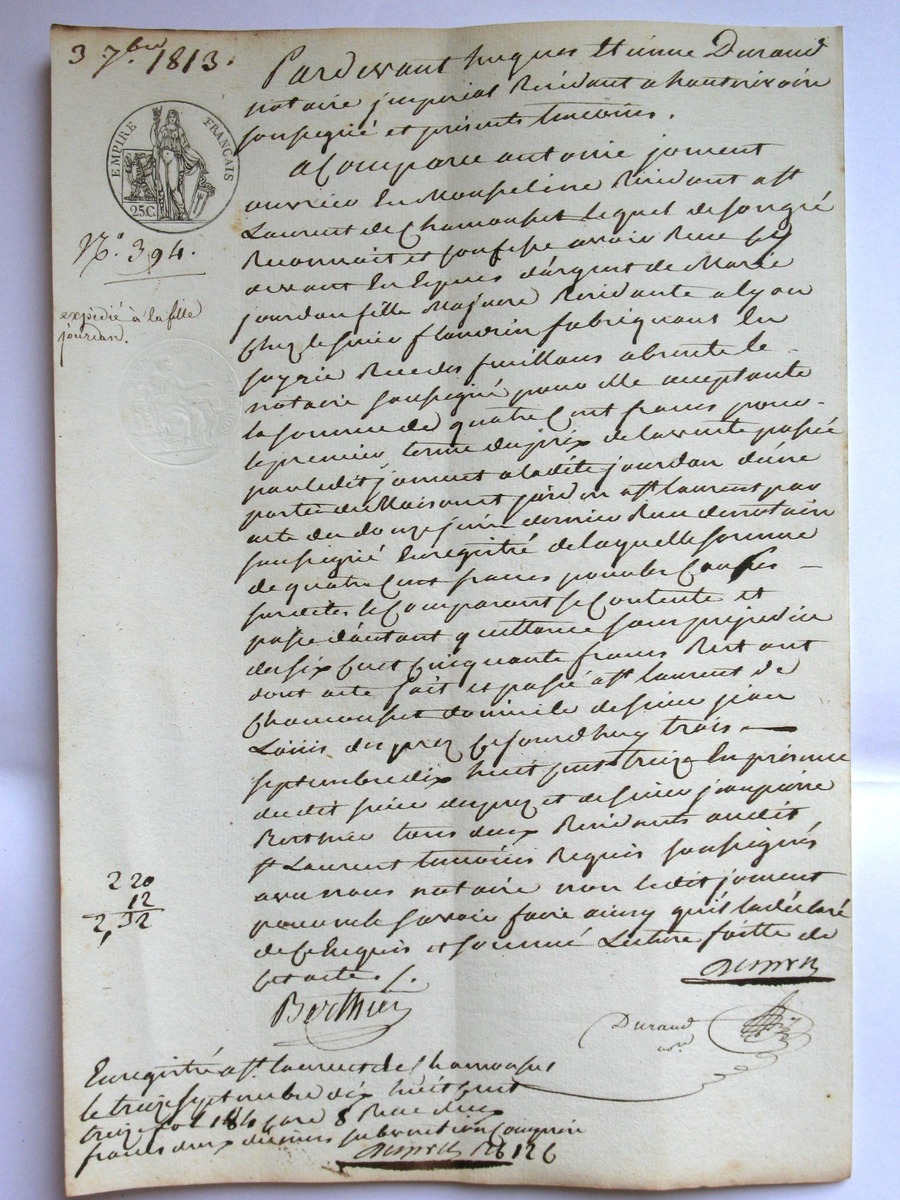 3 7.bre 1813.
Pardevant hugues Etienne Durand
notaire jmperial Residant a hauterivoire
soussigné et présents temoins.
a Comparu antoine joment
ouvrier En Mousseline Residant a st
Laurent de Chamousset lequel de son gré
Reconnait et confesse avoir Recu cy
devant En Especes d'argent de Marie
jourdan fille Majeure Residante a lyon
Chez le sieur flandrin fabriquant En
soyrie Rue des feuillans absente le
notaire soussigné pour elle acceptante
la somme de quatre Cent francs pour
le premier terme du prix de la vente passée
par ledit joment a ladite jourdan d'une
partie de Maison et jardin a st laurent par
acte du douze juin dernier Recu du notaire
soussigné Enregistré de laquelle somme
de quatre Cent francs pour les Causes
susdites le Comparant se Contente et
passe d'autant quittance sans prejudice
des six Cent Cinquante francs Restant
dont acte fait et passé a st laurent de
Chamousset domicile de sieur jean
Louis duprez Cejourd'huy trois
septembre dix huit cent treize En présence
dudit sieur duprez et de sieur jean pierre
Berthier tous deux Residants audit
st Laurent temoins Requis soussignés
avec nous notaire non ledit joment
pour ne le savoir faire ainsy qu'il la déclaré
de ce Enquis et sommé Lecture faitte de
Cet acte./.
Berthier
Durand
nore
EMPIRE FRANÇAIS
25C.
N.o 394.
expédié à la fille
jourdan.
220
12
2,32
Enregistré a st. laurent de Chamousset
le treize septembre dix huit cent
treize fol 184 case 8 Recu deux
francs deux decimes subvention Comprise